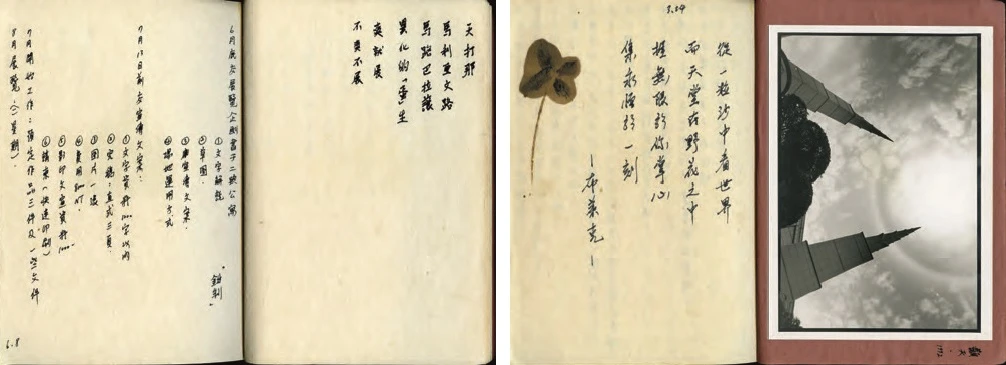 天打那
馬利亞文路
馬路巴拉讓
異化的「蛋」生
爽就展
不爽不展
6月底交展覽企劃書予二號公寓
①文字解說
②草圖
③宣傳文案
④場地運用方式
7月13日前交宣傳文案：
①文字資料1000字以內
②完稿：直式三頁
③圖片一張
④費用800NT
⑤影印文宣資料1000
⑥請柬（快速印刷）
7月開始工作：預定作品三件及一些文件
8月展覽（二星期）
6.8
3.24
從一粒沙中看世界
而天堂在野花之中
握無限於你掌心
集永恆於一刻
—布萊克—